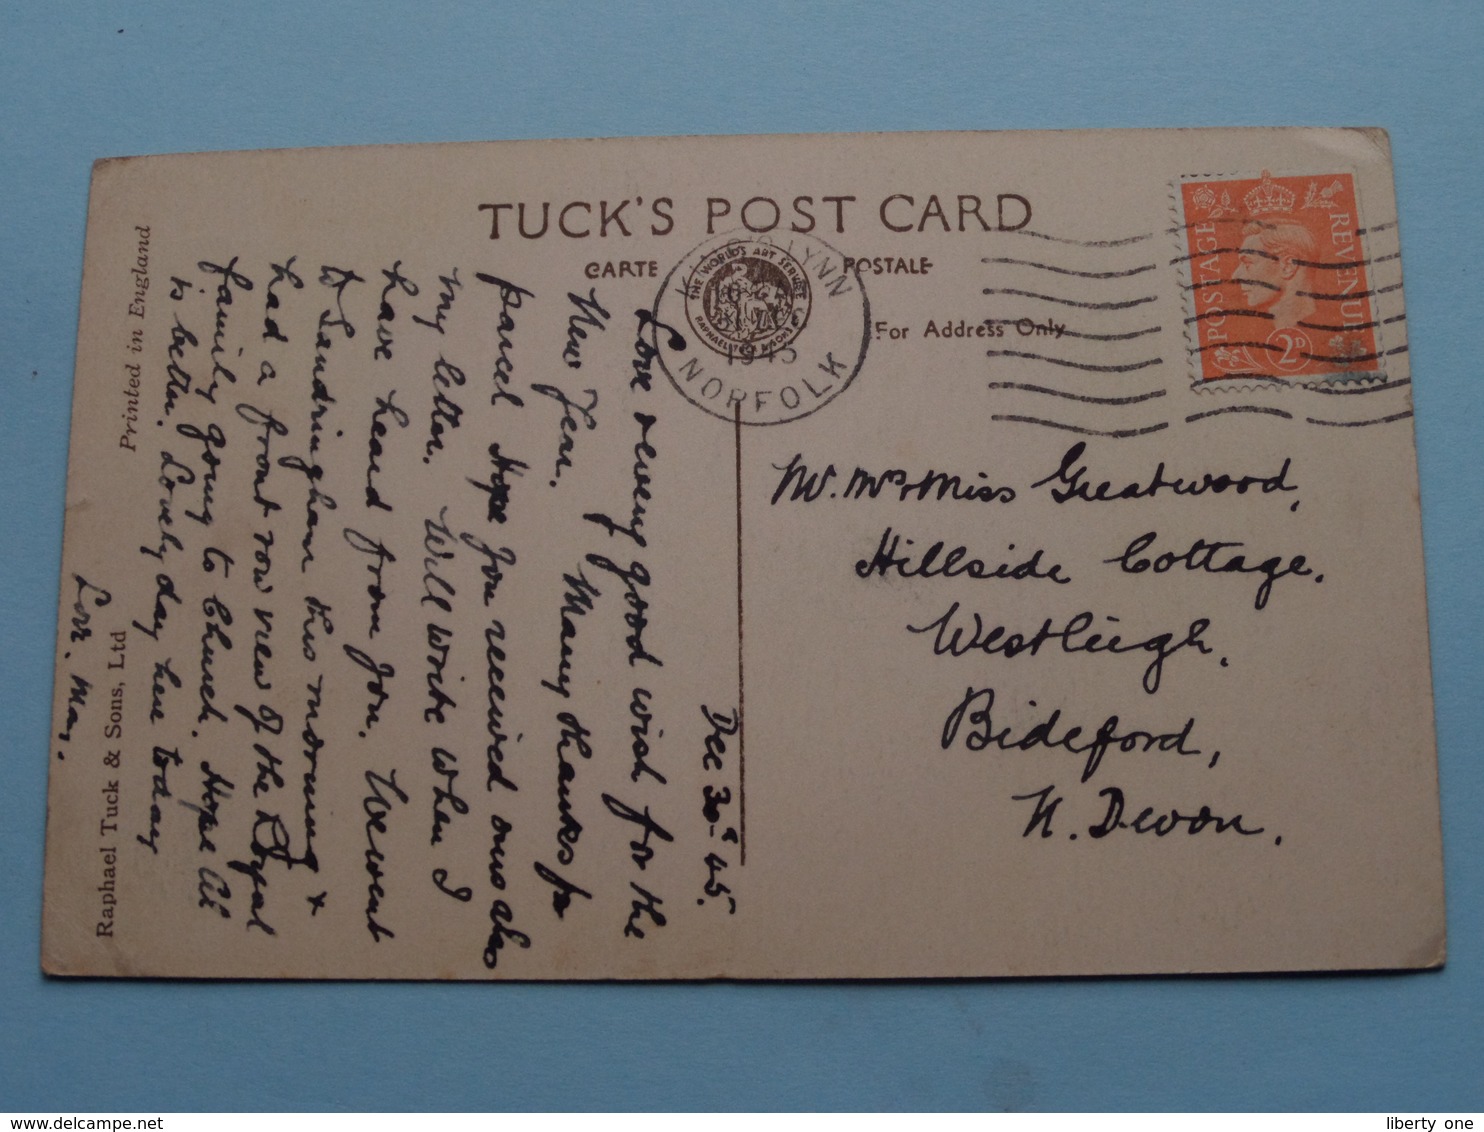 TUCK'S POST CARD
CARTE POSTALE
For Address Only
THE WORLD'S ART SERVICE
RAPHAEL TUCK & SONS
LYNN
1945
NORFOLK
POSTAGE
REVENUE
2D
Mr. Mrs + Miss Greatwood,
Hillside Cottage,
Westleigh,
Bideford,
N. Devon.
Dec 30th 45.
Love very good wish for the
New Year. Many thanks for
parcel Hope you received ours also
my letter. Will write when I
have heard from you. We went
to Sandringham this morning &
had a front row view of the Royal
family going to Church. Hope all
is better. Lovely day here today
Love. May.
Printed in England
Raphael Tuck & Sons, Ltd
liberty one